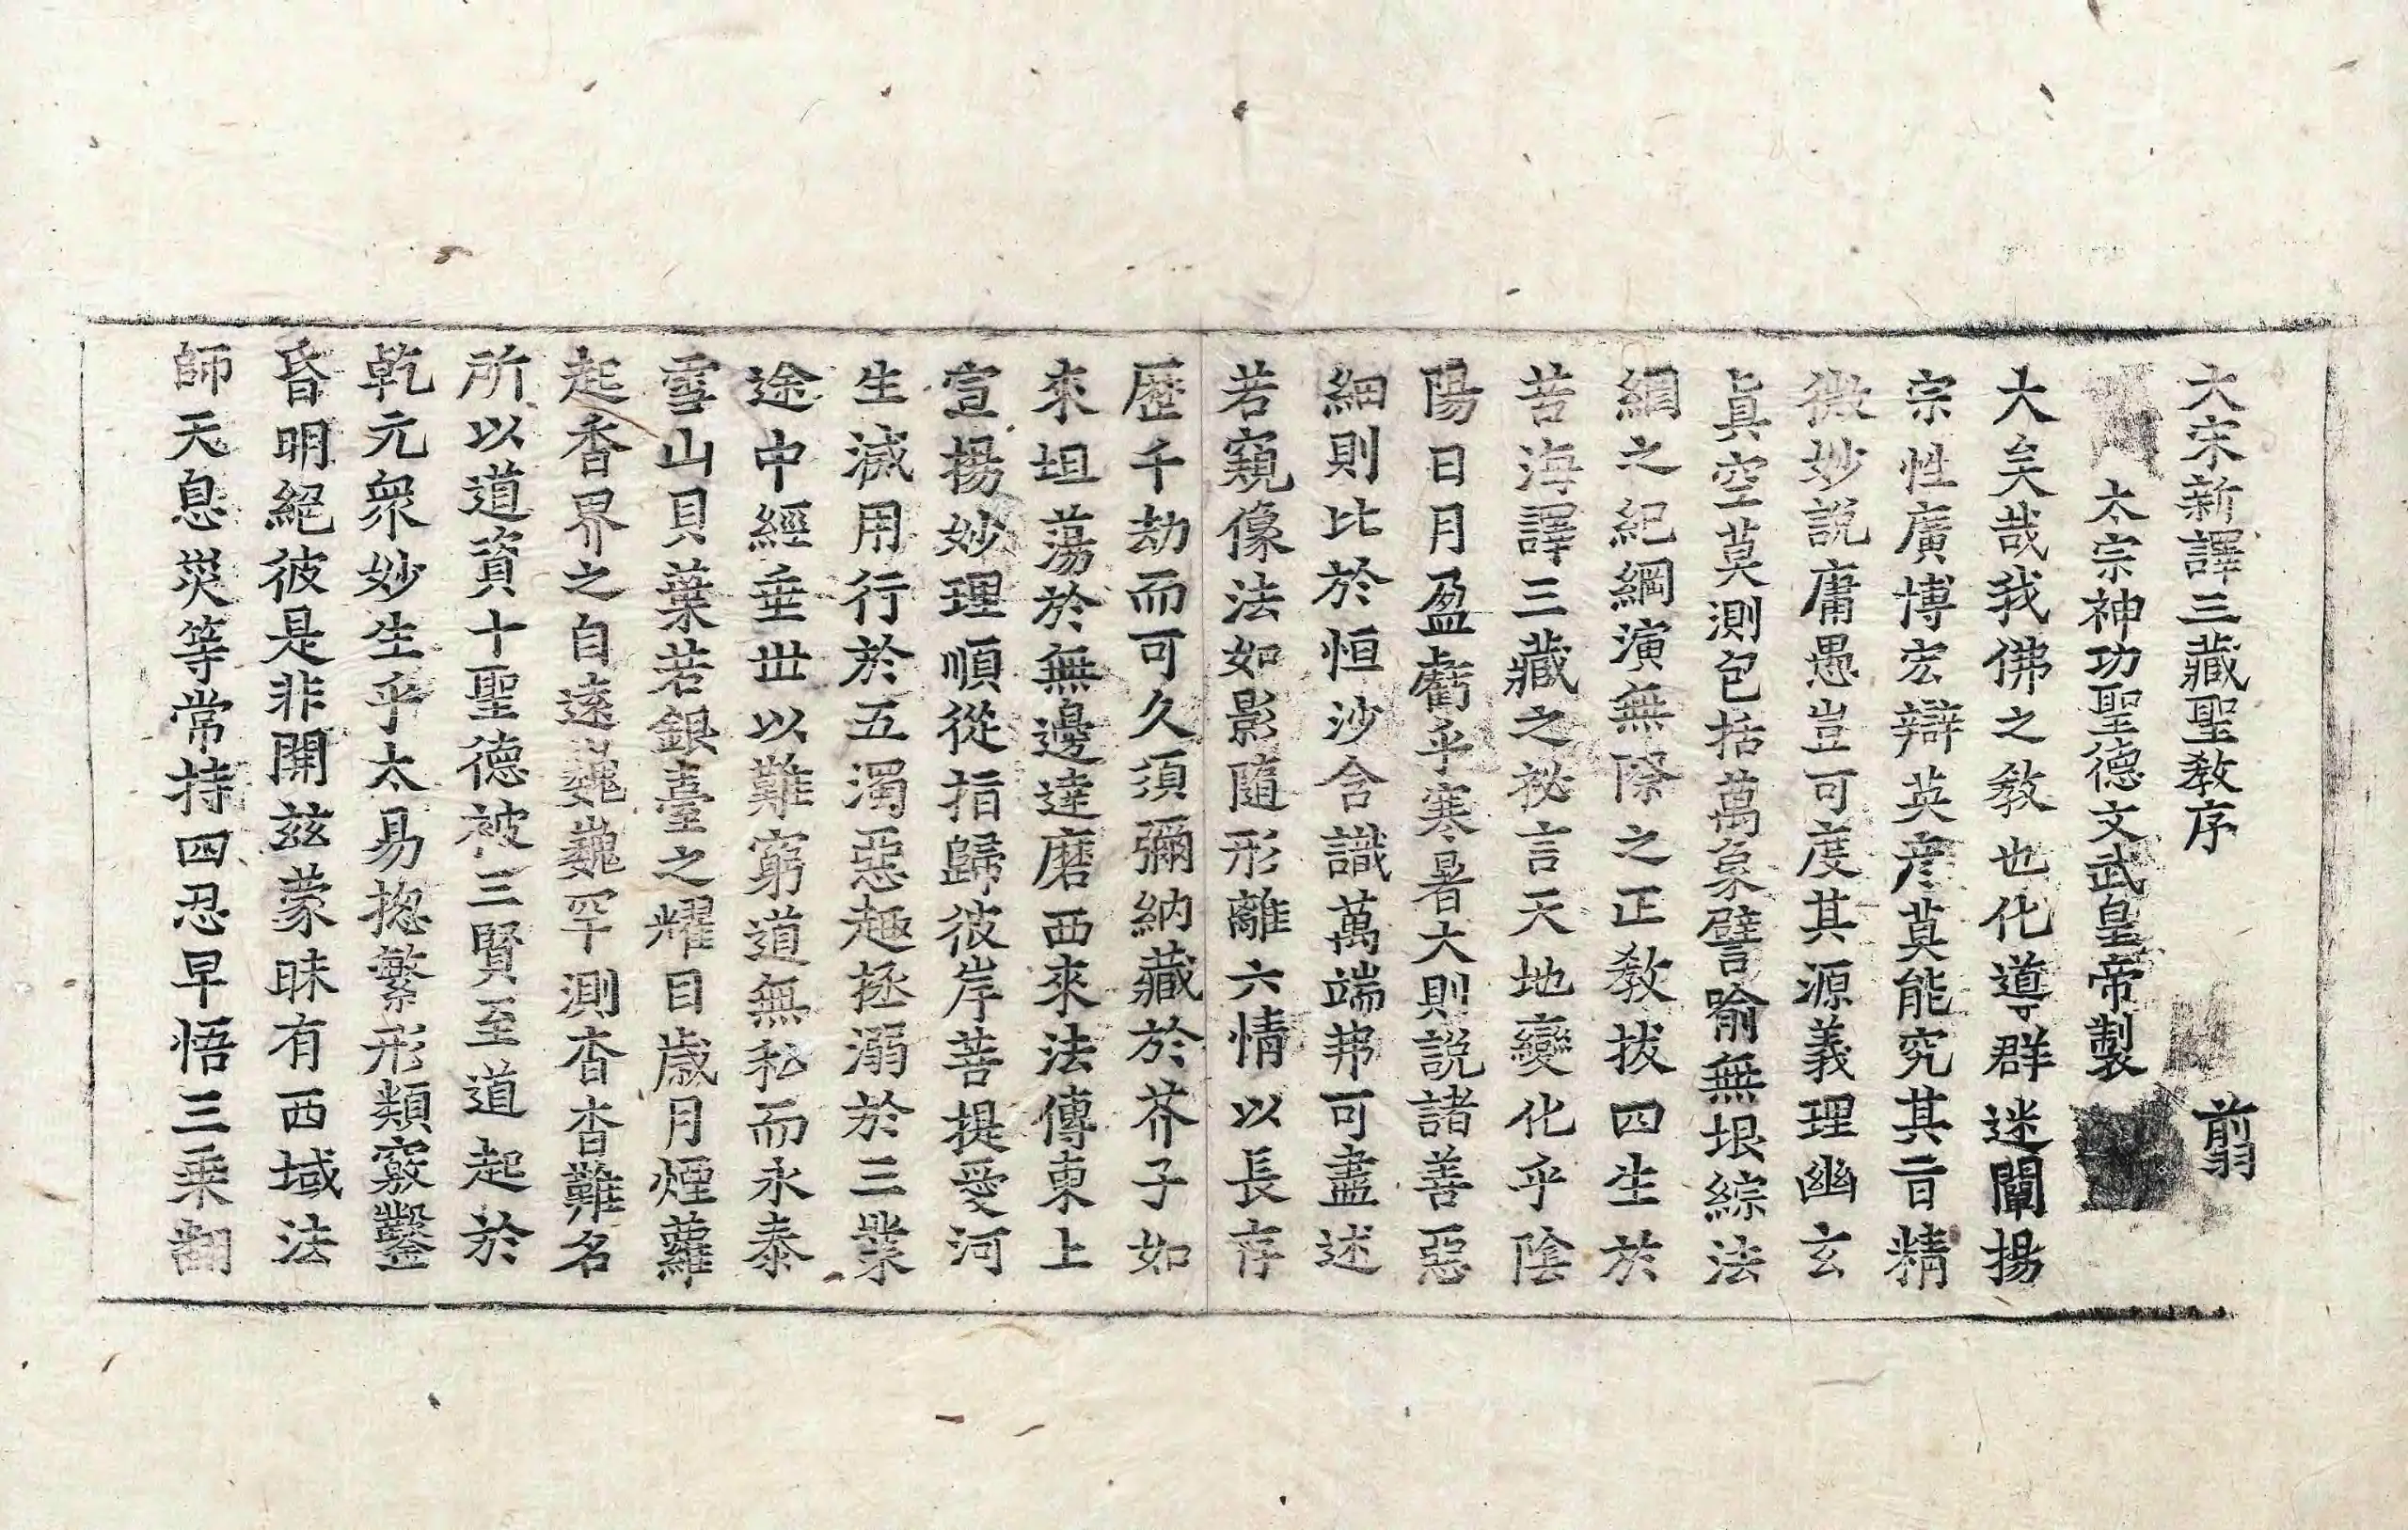 大宋新譯三藏聖教序 翦
太宗神功聖德文武皇帝製
大矣哉我佛之教也化導群迷闡揚
宗性廣博宏辯英彦莫能究其旨精
微妙説庸愚豈可度其源義理幽玄
眞空莫測包括萬象譬喻無垠綜法
綱之紀綱演無際之正教拔四生於
苦海譯三藏之祕言天地變化乎陰
陽日月盈虧乎寒暑大則説諸善惡
細則比於恒沙含識萬端弗可盡述
若窺像法如影隨形離六情以長存
歷千劫而可久須彌納藏於芥子如
來坦蕩於無邊達磨西來法傳東上
宣揚妙理順從指歸彼岸菩提愛河
生滅用行於五濁惡趣拯溺於三業
途中經垂世以難窮道無私而永泰
雪山貝葉若銀臺之耀目歲月煙蘿
起香界之自遠巍巍罕測杳杳難名
所以道資十聖德被三賢至道起於
乾元衆妙生乎太易揔繁形類竅鑿
昏明絕彼是非開玆蒙昧有西域法
師天息災等常持四忍早悟三乘翻